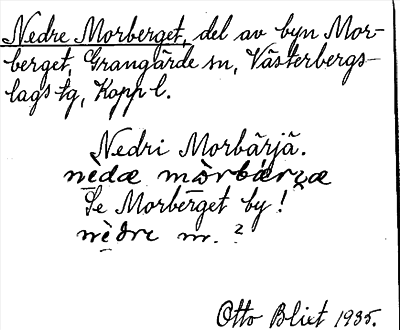 Nedre Morberget, del av byn Mor-
berget, Grangärde sn, Västerbergs-
lags tg, Kopp l.
Nedri Morbärjä.
nèdæ mòrbærzæ
Se Morberget by!
nèdre m. ?
Otto Blixt 1935.